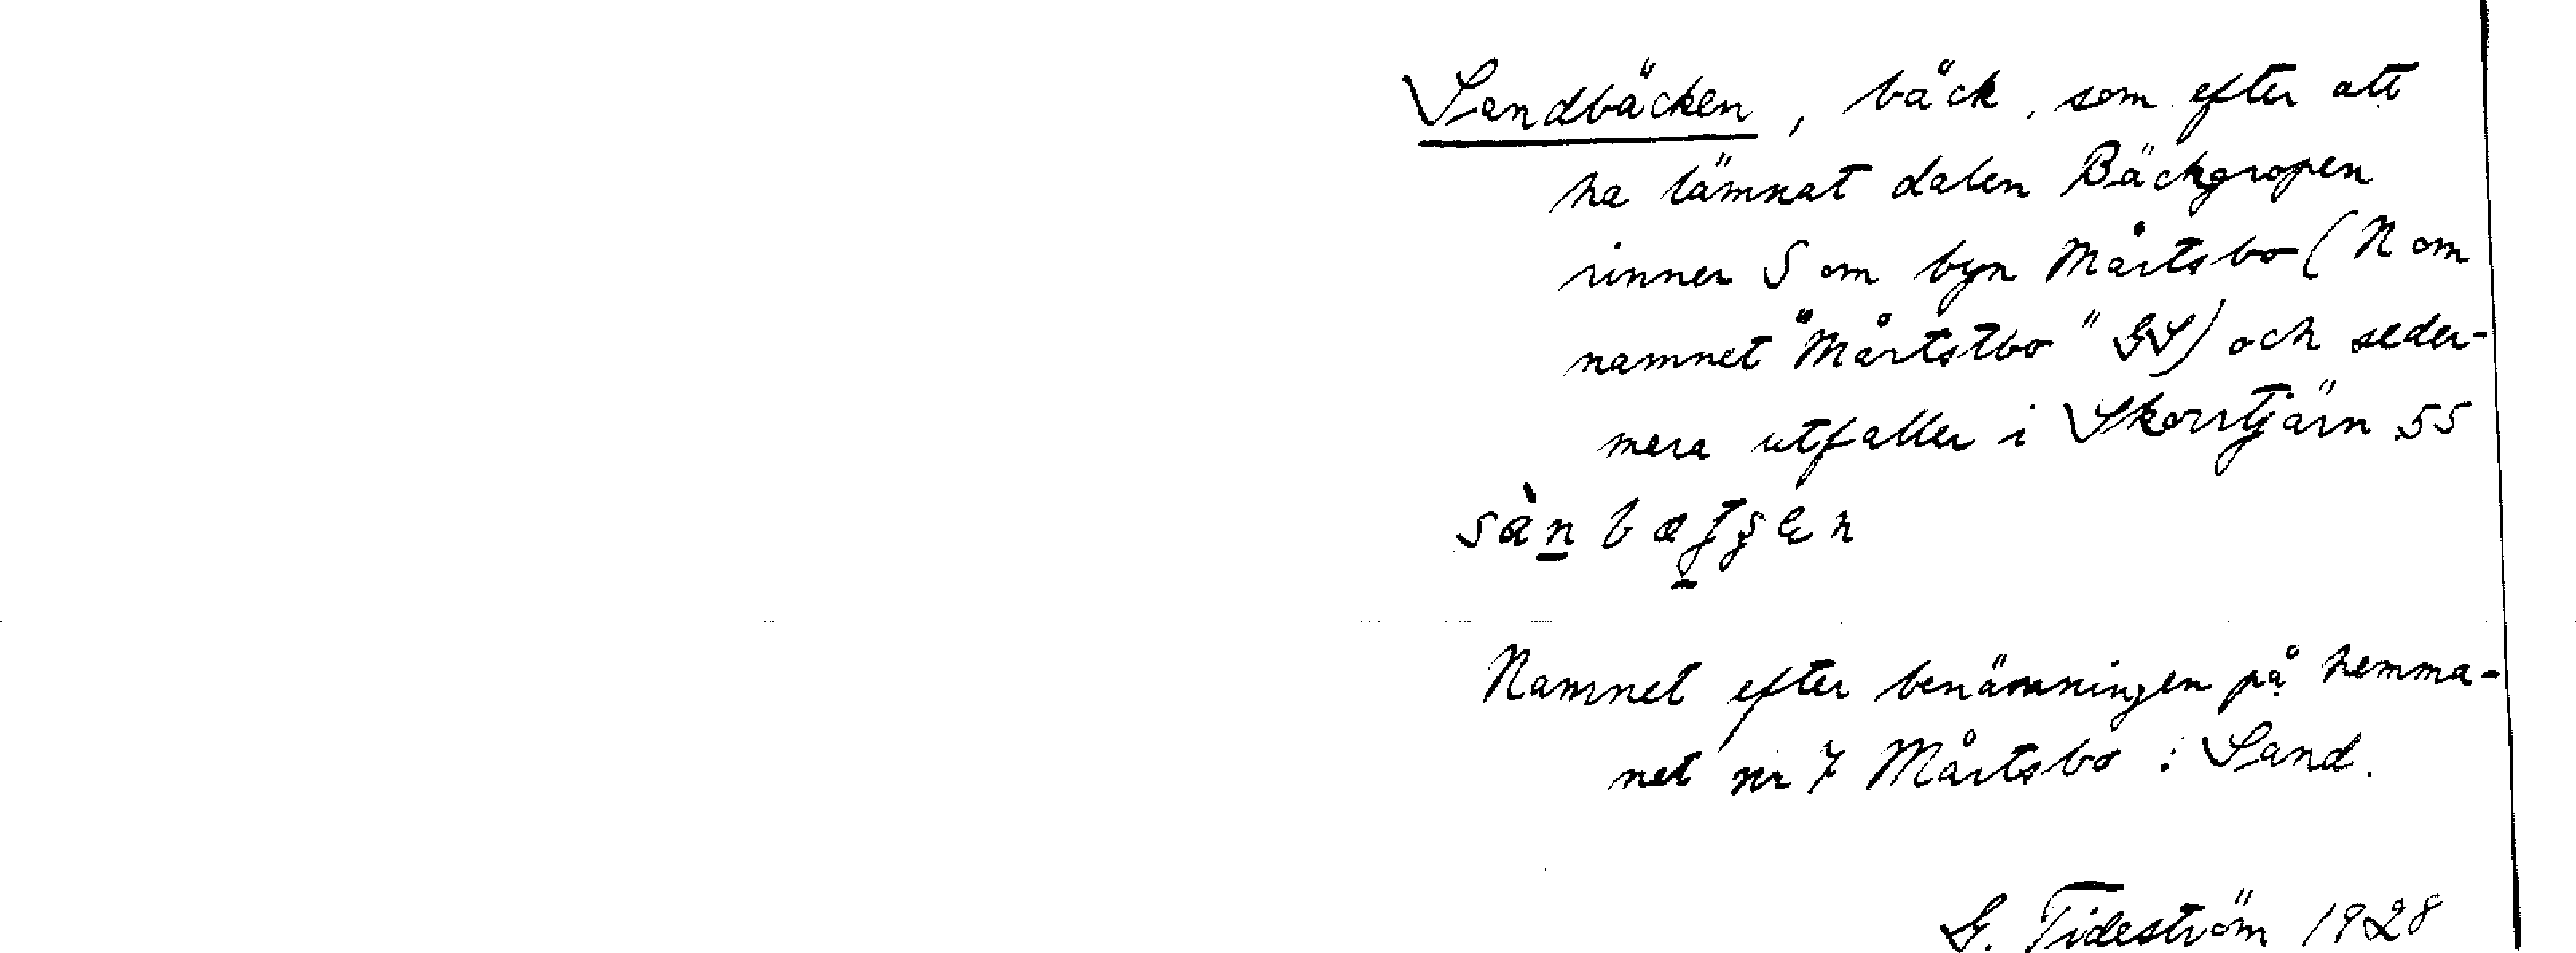 Sandbäcken, bäck, som efter att
ha lämnat dalen Bäckgropen
rinner S om byn Mårtsbo (N om
namnet "Mårtstbo" GS) och seder-
mera utfaller i Skorrtjärn 55
Namnet efter benämningen på hemma-
net nr 7 Mårtsbo : Sand.
G. Tideström 1928